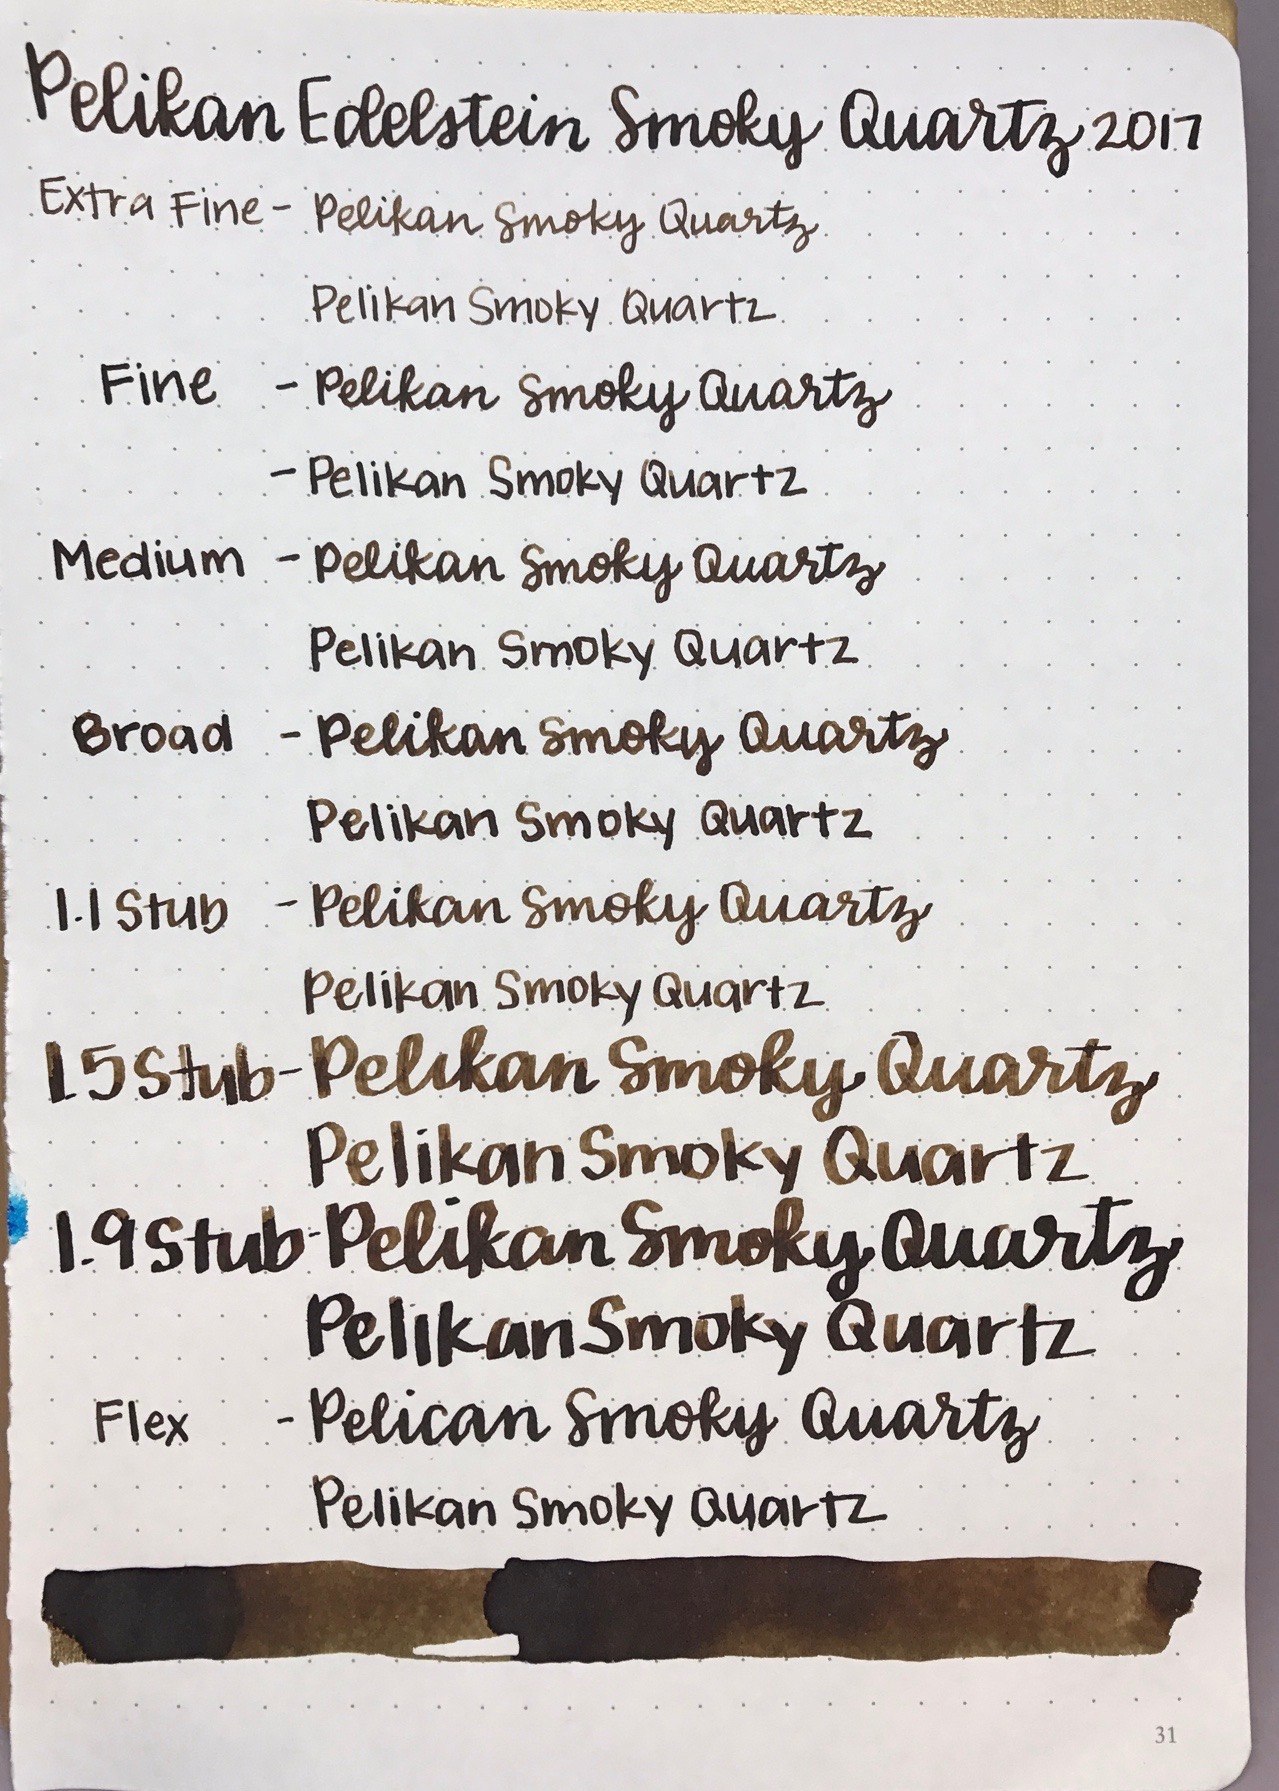 Pelikan Edelstein Smoky Quartz 2017
Extra Fine - Pelikan Smoky Quartz
Pelikan Smoky Quartz
Fine - Pelikan Smoky Quartz
- Pelikan Smoky Quartz
Medium - Pelikan Smoky Quartz
Pelikan Smoky Quartz
Broad - Pelikan Smoky Quartz
Pelikan Smoky Quartz
1.1 Stub - Pelikan Smoky Quartz
Pelikan Smoky Quartz
1.5 Stub - Pelikan Smoky Quartz
Pelikan Smoky Quartz
1.9 Stub - Pelikan Smoky Quartz
Pelikan Smoky Quartz
Flex - Pelican Smoky Quartz
Pelikan Smoky Quartz
31